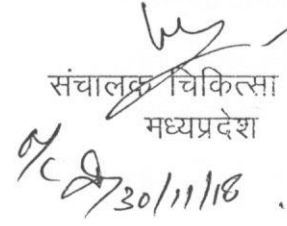 संचालक चिकित्सा
मध्यप्रदेश
30/11/18